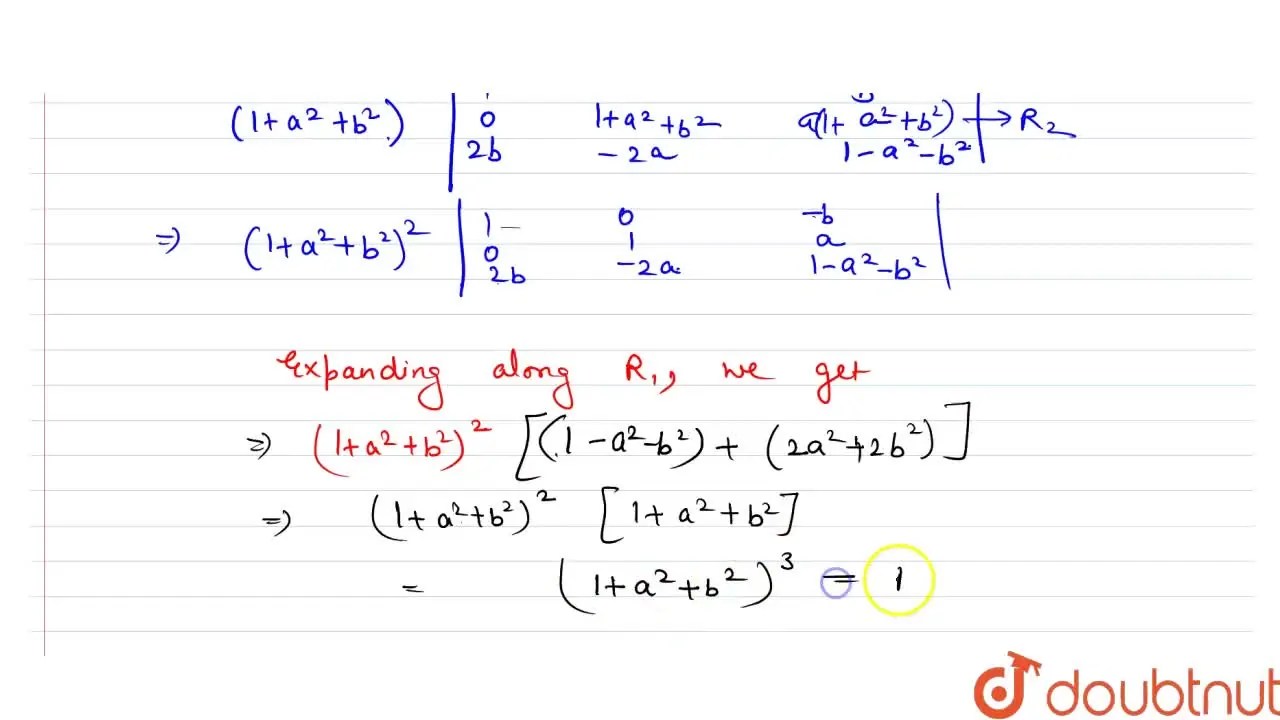 (1+a²+b²) | 0 1+a²+b² a(1+a²+b²) | → R₂
| 2b -2a 1-a²-b² |
| 1 0 -b |
⇒ (1+a²+b²)² | 0 1 a |
| 2b -2a 1-a²-b² |
Expanding along R₁, we get
⇒ (1+a²+b²)² [(1-a²-b²) + (2a²+2b²)]
⇒ (1+a²+b²)² [1+a²+b²]
= (1+a²+b²)³ = 1
doubtnut